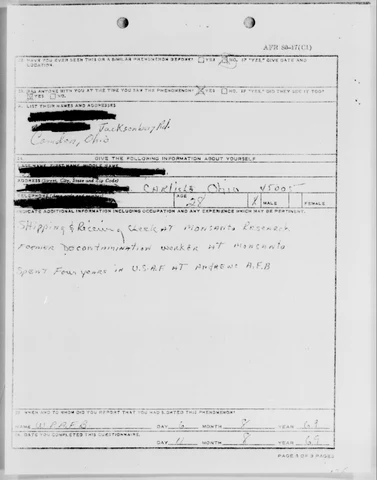 AFR 80-17(C1)
HAVE YOU EVER SEEN THIS OR A SIMILAR PHENOMENON BEFORE? YES NO IF "YES," GIVE DATE AND LOCATION.
ANYONE WITH YOU AT THE TIME YOU SAW THE PHENOMENON? YES NO. IF "YES," DID THEY SEE IT TOO?
YES NO.
LIST THEIR NAMES AND ADDRESSES
Jacksonburg Rd.
Ohio
GIVE THE FOLLOWING INFORMATION ABOUT YOURSELF
LAST NAME, FIRST NAME, MIDDLE NAME
ADDRESS (Street, City, State and Zip Code)
CARlislE Ohio 45005
AGE 28 X MALE FEMALE
INDICATE ADDITIONAL INFORMATION INCLUDING OCCUPATION AND ANY EXPERIENCE WHICH MAY BE PERTINENT.
SHipping & Receiving Clerk AT MONSANTO RESEARCH
FORMER DECONTAMINATION WORKER AT MONSANTO
SPENT FOUR years in U.S.A.F AT ANDREWS A.F.B
WHEN AND TO WHOM DID YOU REPORT THAT YOU HAD SIGHTED THIS PHENOMENON?
NAME W.P.A.F.B DAY 6 MONTH 8 YEAR 69
DATE YOU COMPLETED THIS QUESTIONNAIRE. DAY 11 MONTH 8 YEAR 69
PAGES